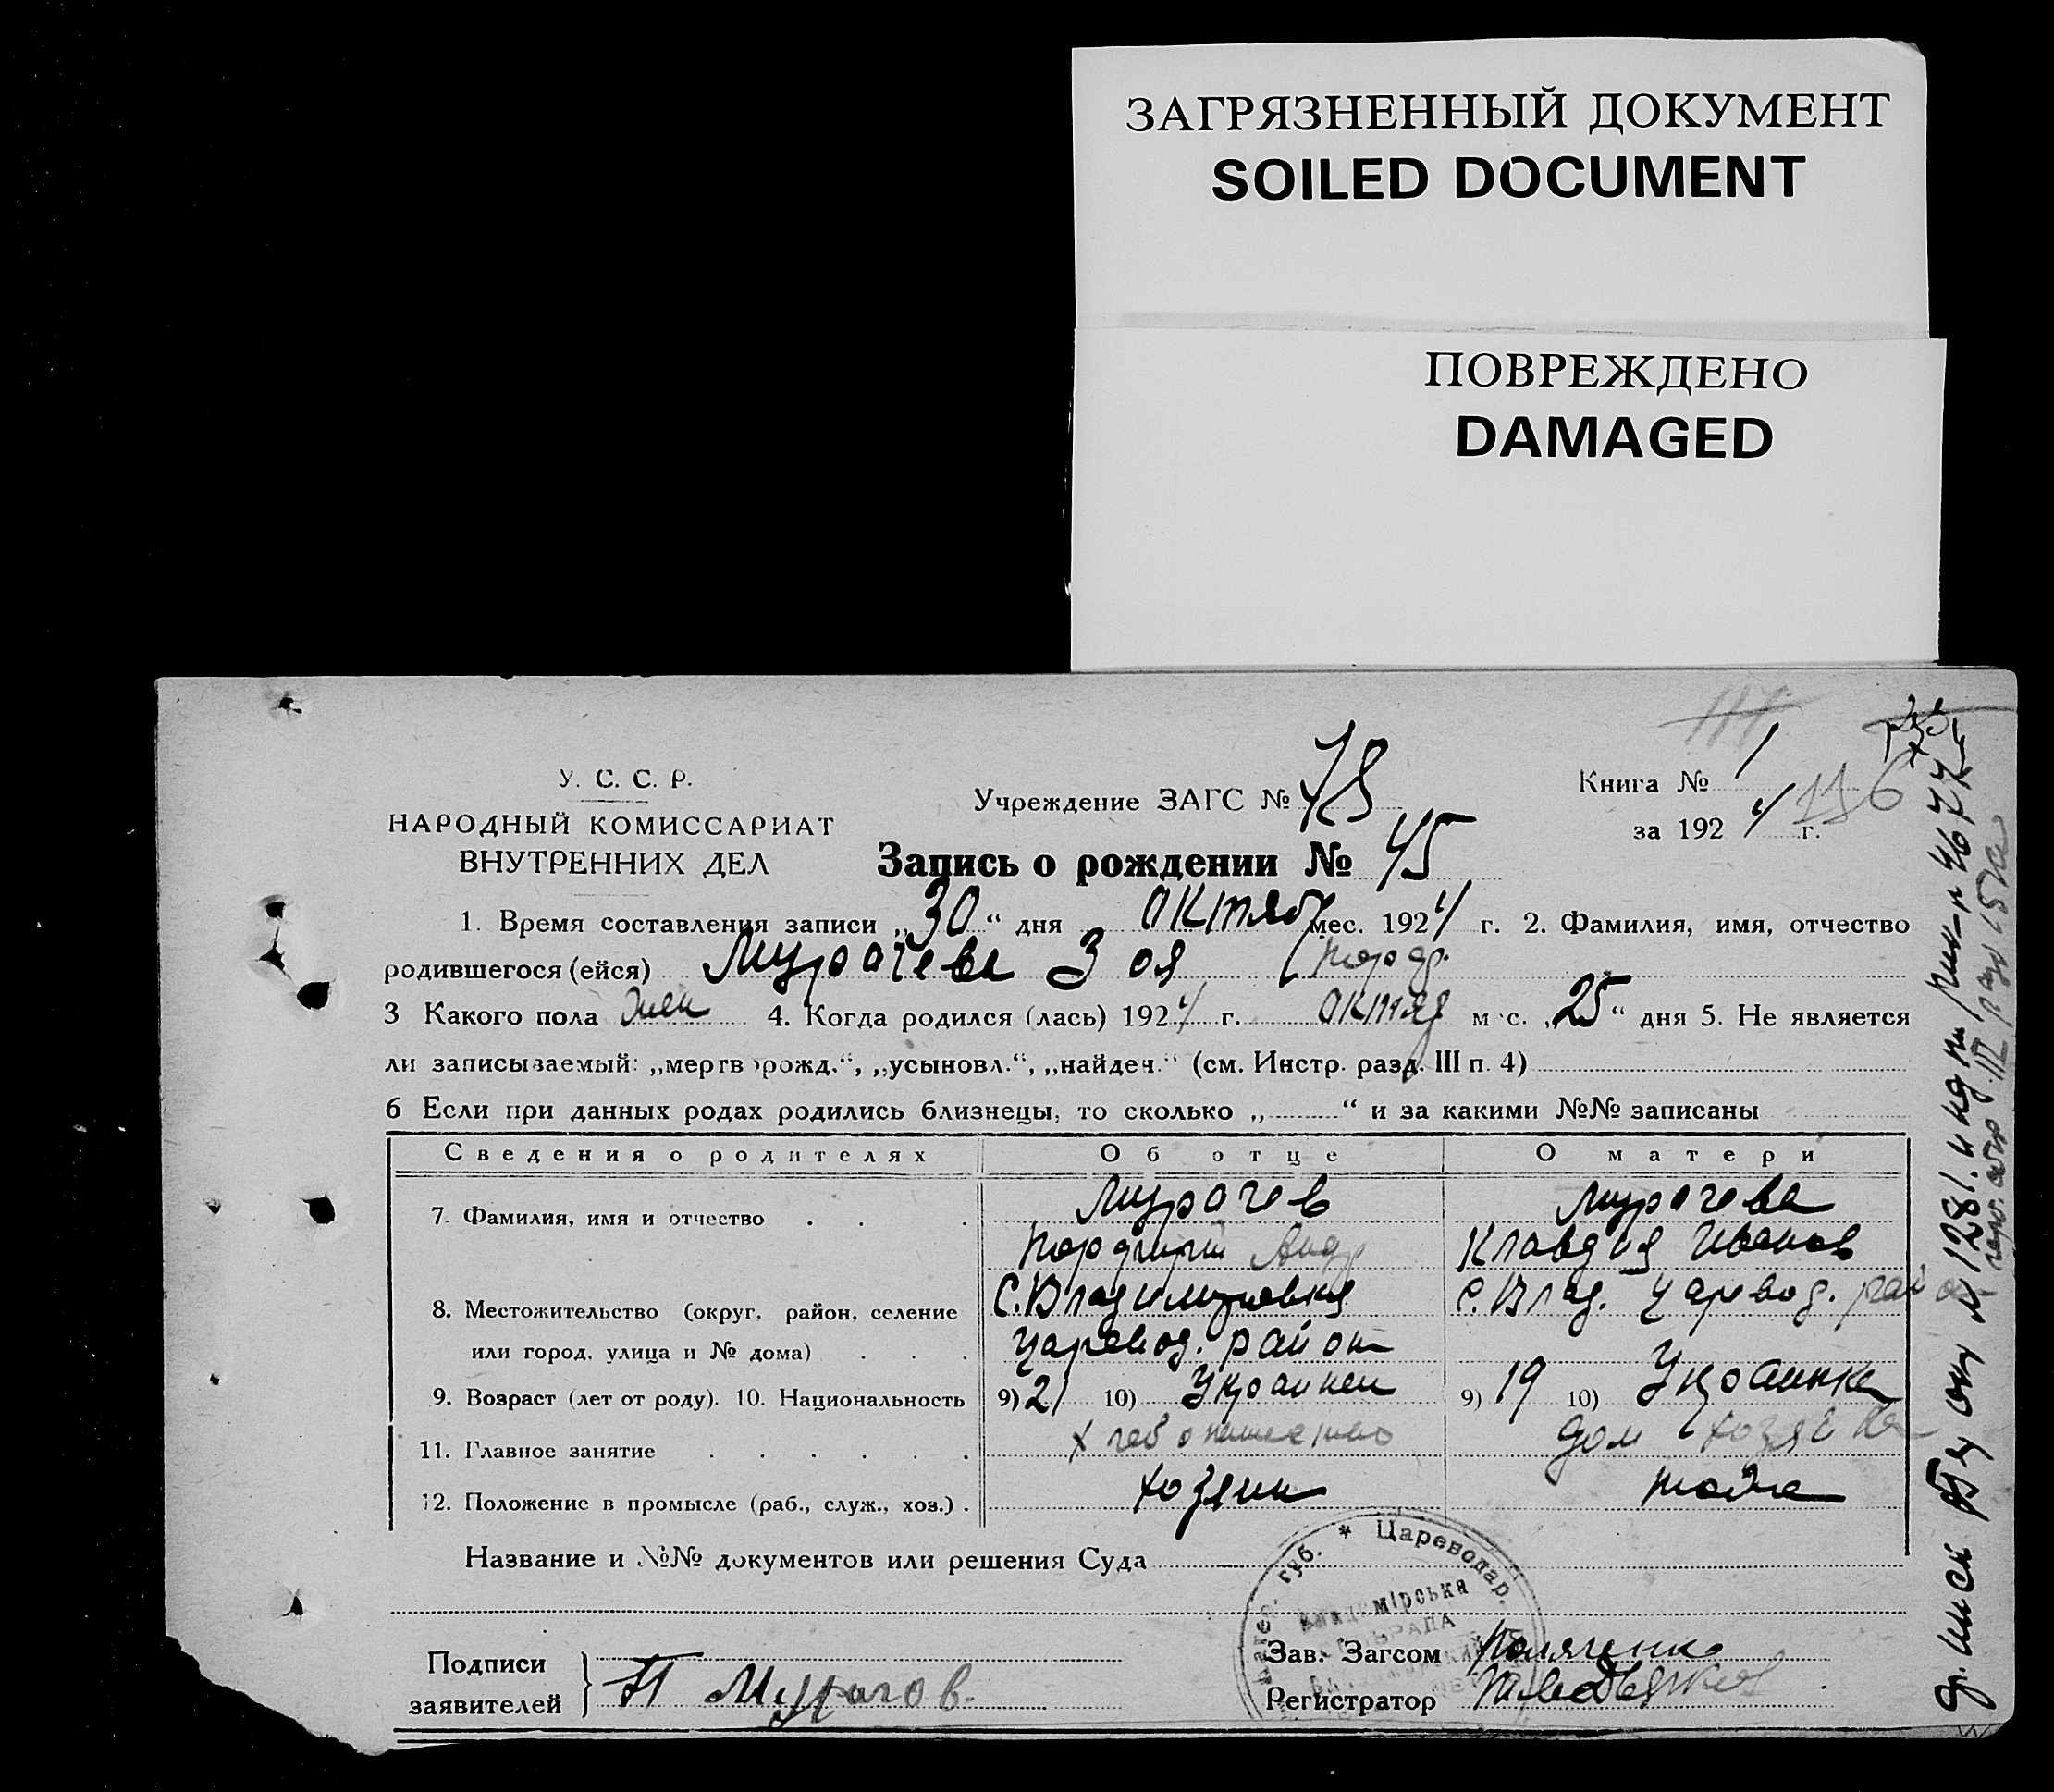 ЗАГРЯЗНЕННЫЙ ДОКУМЕНТ
SOILED DOCUMENT
ПОВРЕЖДЕНО
DAMAGED
У. С. С. Р.
НАРОДНЫЙ КОМИССАРИАТ
ВНУТРЕННИХ ДЕЛ
Учреждение ЗАГС №
Книга № 1
за 192 4 г. 136
Запись о рождении № 45
1. Время составления записи „30“ дня октяб мес. 1924 г. 2. Фамилия, имя, отчество
родившегося (ейся) Мурачева Зоя
3 Какого пола жен 4. Когда родился (лась) 1924 г. октяб м с. „25“ дня 5. Не является
ли записываемый: „мертворожд.“, „усыновл.“, „найден.“ (см. Инстр. разд. III п. 4)
6 Если при данных родах родились близнецы, то сколько „ “ и за какими №№ записаны
Сведения о родителях Об отце О матери
7. Фамилия, имя и отчество Мурачев Мурачева
Порфирий Анд Клавдия Иванов
8. Местожительство (округ, район, селение С. Владимировка с. Влад. Царевод. район
или город, улица и № дома) Царевод. район
9. Возраст (лет от роду). 10. Национальность 9) 21 10) Украинец 9) 19 10) Украинка
11. Главное занятие хлебопашество дом хозяйка
12. Положение в промысле (раб., служ., хоз.) хозяин
Название и №№ документов или решения Суда
губ. * Цареводар.
Подписи
заявителей
П Мурачов
Зав. Загсом
Регистратор